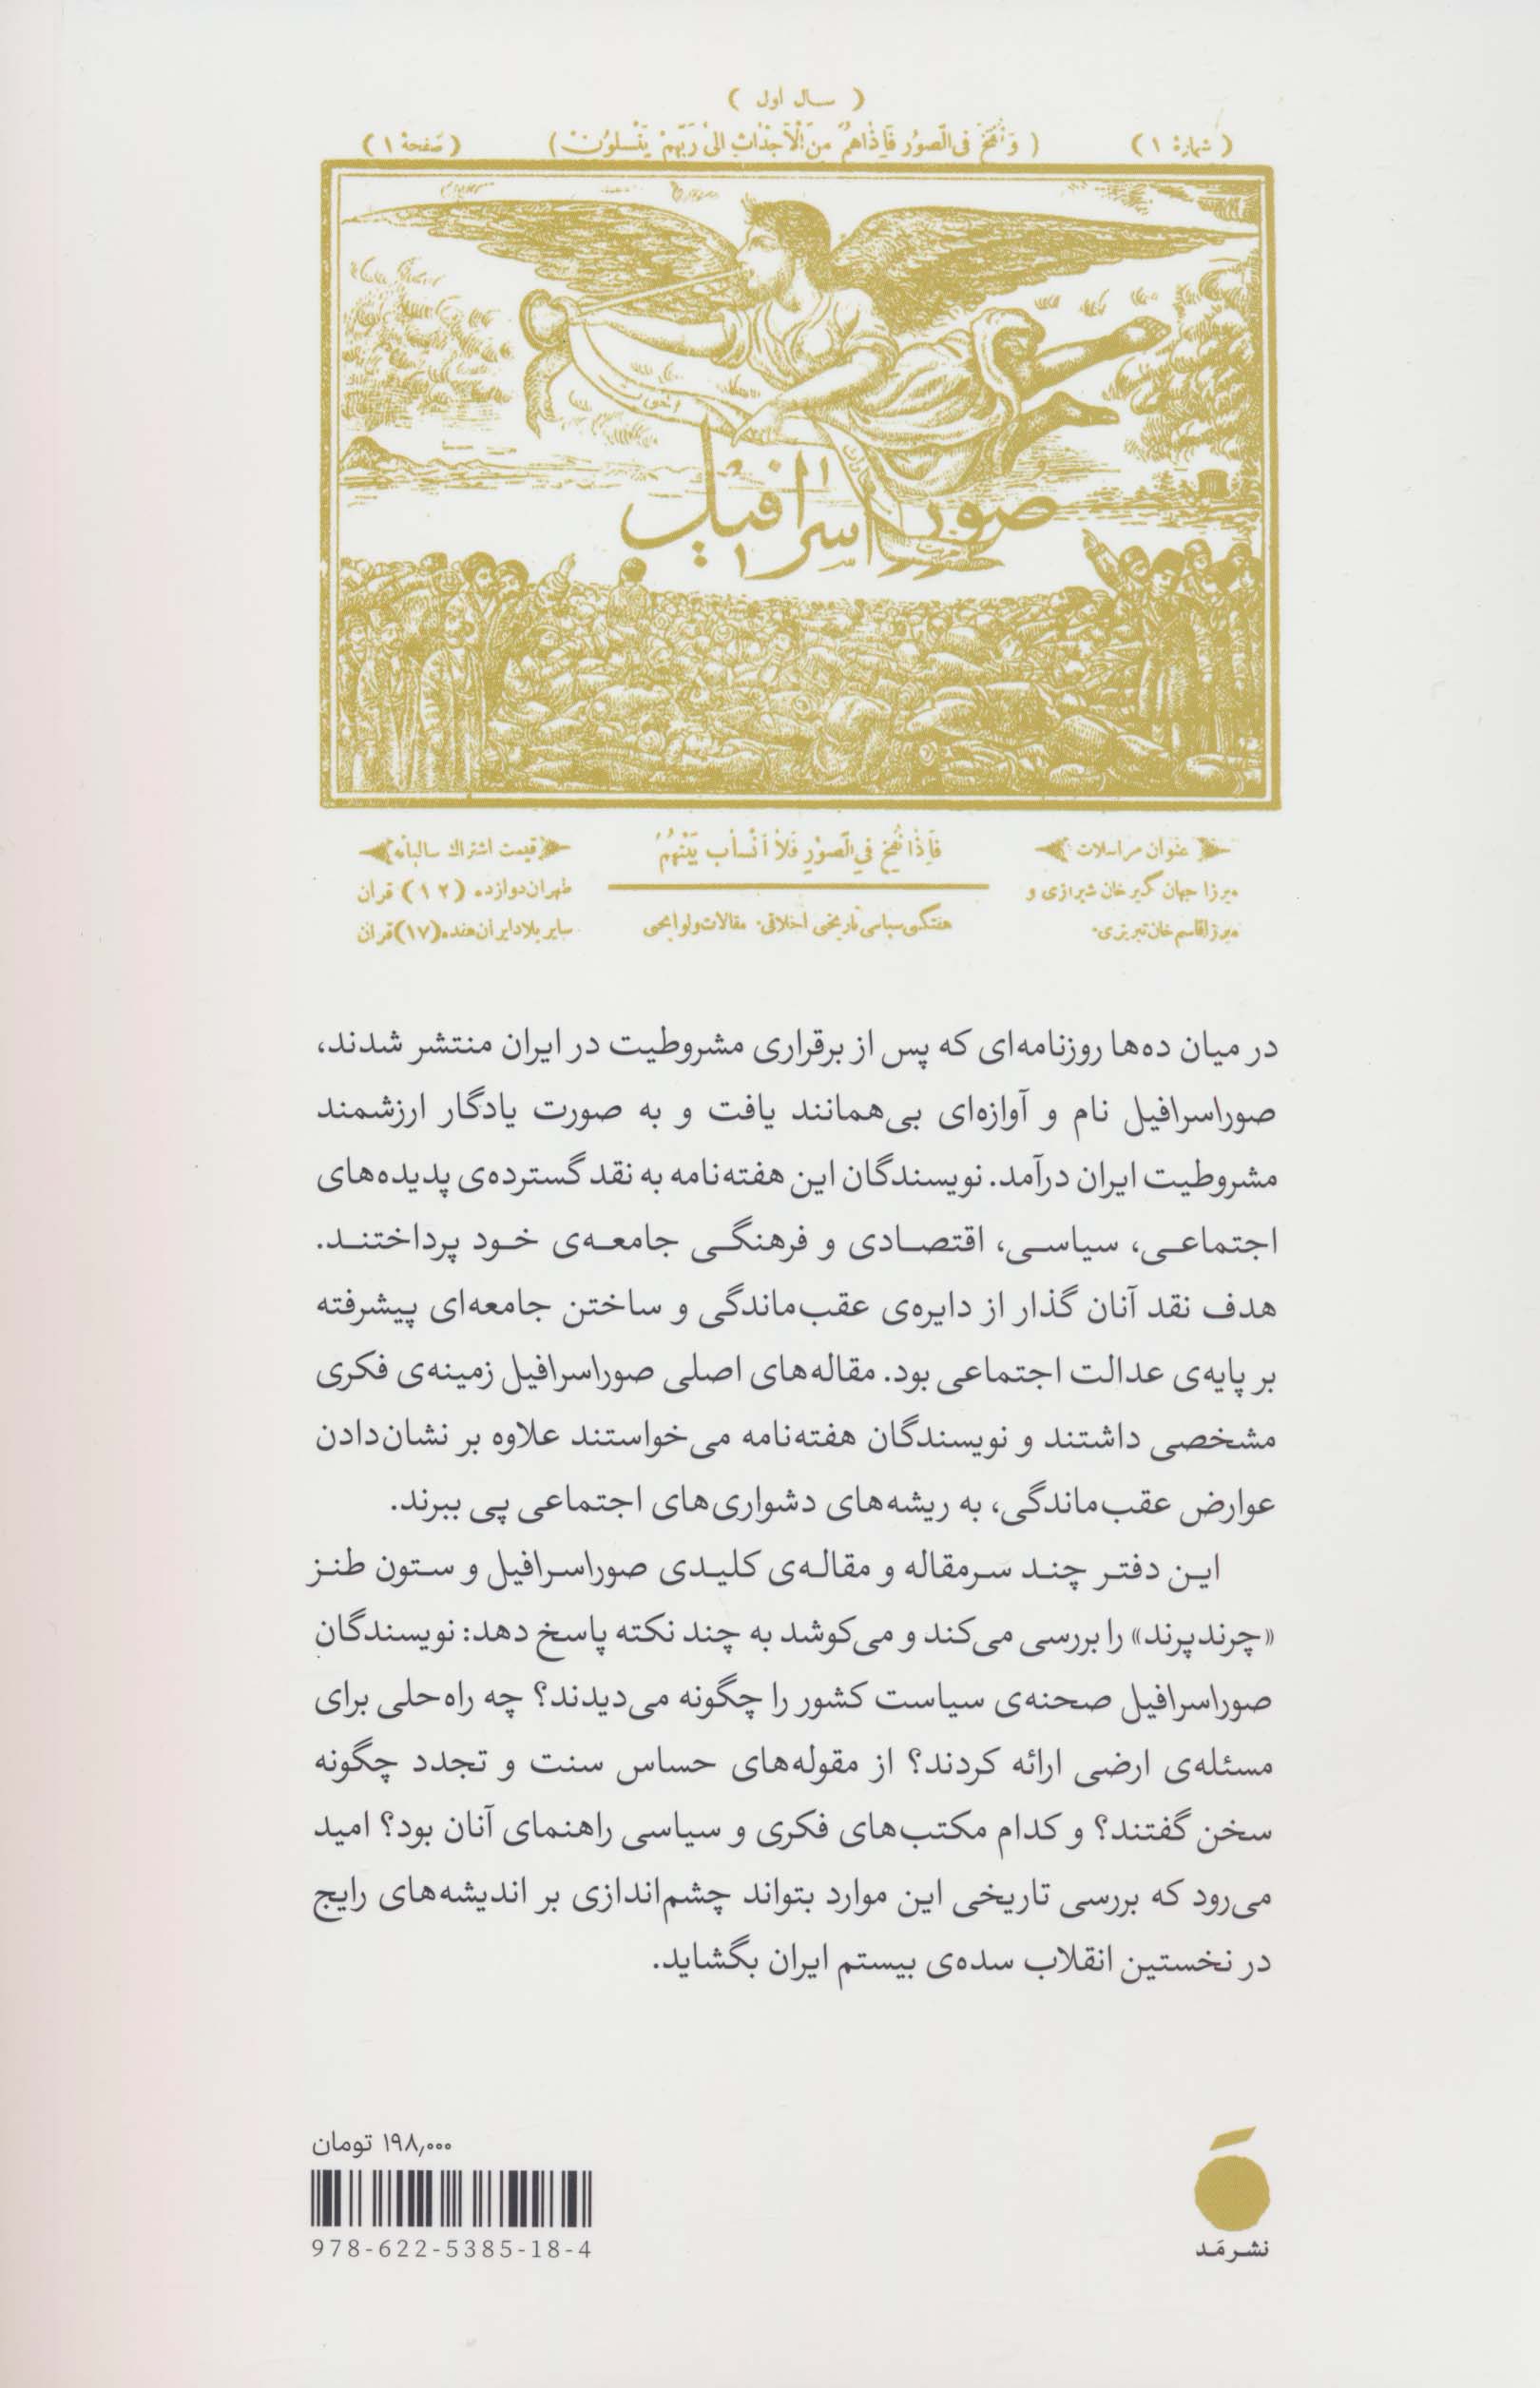 ( سال اول )
( شمارهٔ ۱ ) ( وَنُفِخَ فی الصّور فَاِذاهم مِنَ الاَجْدٰاثِ الیٰ رَبِّهِمْ یَنْسِلوُنَ ) ( صَفحهٔ ۱ )
صور اسرافیل
عنوان مراسلات
میرزا جهان گیر خان شیرازی و
میرزا قاسم خان تبریزی.
فَاِذٰا نُفِخَ فِی الصّوْرِ فَلاٰ اَنْسٰابَ بَیْنَهُمْ
هفتگی سیاسی تاریخی اخلاقی. مقالات و لوایحی
قیمت اشتراك سالیانه
طهران دوازده (۱۲) قران
سایر بلاد ایران هفده (۱۷) قران
در میان ده‌ها روزنامه‌ای که پس از برقراری مشروطیت در ایران منتشر شدند،
صوراسرافیل نام و آوازه‌ای بی‌همانند یافت و به صورت یادگار ارزشمند
مشروطیت ایران درآمد. نویسندگان این هفته‌نامه به نقد گسترده‌ی پدیده‌های
اجتماعی، سیاسی، اقتصادی و فرهنگی جامعه‌ی خود پرداختند.
هدف نقد آنان گذار از دایره‌ی عقب‌ماندگی و ساختن جامعه‌ای پیشرفته
بر پایه‌ی عدالت اجتماعی بود. مقاله‌های اصلی صوراسرافیل زمینه‌ی فکری
مشخصی داشتند و نویسندگان هفته‌نامه می‌خواستند علاوه بر نشان‌دادن
عوارض عقب‌ماندگی، به ریشه‌های دشواری‌های اجتماعی پی ببرند.
این دفتر چند سرمقاله و مقاله‌ی کلیدی صوراسرافیل و ستون طنز
«چرندپرند» را بررسی می‌کند و می‌کوشد به چند نکته پاسخ دهد: نویسندگان
صوراسرافیل صحنه‌ی سیاست کشور را چگونه می‌دیدند؟ چه راه‌حلی برای
مسئله‌ی ارضی ارائه کردند؟ از مقوله‌های حساس سنت و تجدد چگونه
سخن گفتند؟ و کدام مکتب‌های فکری و سیاسی راهنمای آنان بود؟ امید
می‌رود که بررسی تاریخی این موارد بتواند چشم‌اندازی بر اندیشه‌های رایج
در نخستین انقلاب سده‌ی بیستم ایران بگشاید.
۱۹۸٫۰۰۰ تومان
978-622-5385-18-4
نشر مَد